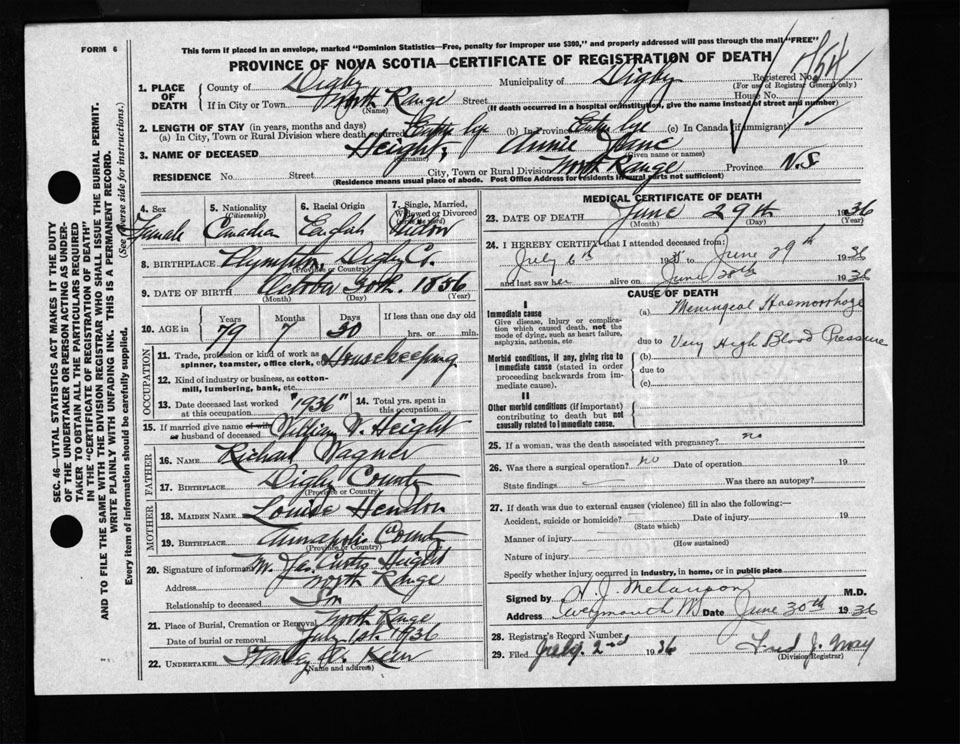 FORM 6
This form if placed in an envelope, marked "Dominion Statistics—Free, penalty for improper use $300," and properly addressed will pass through the mail "FREE"
PROVINCE OF NOVA SCOTIA—CERTIFICATE OF REGISTRATION OF DEATH
SEC. 46—VITAL STATISTICS ACT MAKES IT THE DUTY
OF THE UNDERTAKER OR PERSON ACTING AS UNDER-
TAKER TO OBTAIN ALL THE PARTICULARS REQUIRED
IN THE "CERTIFICATE OF REGISTRATION OF DEATH"
AND TO FILE THE SAME WITH THE DIVISION REGISTRAR WHO SHALL ISSUE THE BURIAL PERMIT.
WRITE PLAINLY WITH UNFADING INK. THIS IS A PERMANENT RECORD.
Every item of information should be carefully supplied. (See reverse side for instructions.)
1. PLACE OF DEATH County of Digby Municipality of Digby Registered No.
(For use of Registrar General only)
If in City or Town North Range Street House No.
(Name) (If death occurred in a hospital or institution, give the name instead of street and number)
2. LENGTH OF STAY (in years, months and days)
(a) In City, Town or Rural Division where death occurred Entire life (b) In Province Entire life (c) In Canada (if immigrant)
3. NAME OF DECEASED Height, Annie Jane
(Surname) (Given name or names)
RESIDENCE No. Street City, Town or Rural Division North Range Province N.S
(Residence means usual place of abode. Post Office Address for residents in rural parts not sufficient)
4. Sex 5. Nationality (Citizenship) 6. Racial Origin 7. Single, Married, Widowed or Divorced
Female Canadian English Widow
8. BIRTHPLACE Plympton, Digby Co.
(Province or Country)
9. DATE OF BIRTH October 30th. 1856
(Month) (Day) (Year)
10. AGE in Years Months Days If less than one day old
79 7 30 hrs. or min.
OCCUPATION
11. Trade, profession or kind of work as spinner, teamster, office clerk, etc. Housekeeping
12. Kind of industry or business, as cotton-mill, lumbering, bank, etc.
13. Date deceased last worked at this occupation "1936" 14. Total yrs. spent in this occupation
15. If married give name of wife or husband of deceased William V. Height
FATHER
16. NAME Richard Wagner
17. BIRTHPLACE Digby County
(Province or Country)
MOTHER
18. MAIDEN NAME Louise Hendon
19. BIRTHPLACE Annapolis County
(Province or Country)
20. Signature of informant Curtis Height
Address North Range
Relationship to deceased Son
21. Place of Burial, Cremation or Removal North Range
Date of burial or removal July 1st. 1936
22. UNDERTAKER
(Name and address)
MEDICAL CERTIFICATE OF DEATH
23. DATE OF DEATH June 29th 1936
(Month) (Day) (Year)
24. I HEREBY CERTIFY that I attended deceased from:
July 6th to June 29th 1936
and last saw her alive on June 28th 1936
CAUSE OF DEATH
I
Immediate cause (a) Meningeal Haemorrhage
Give disease, injury or complication which caused death, not the mode of dying, such as heart failure, asphyxia, asthenia, etc
due to Very High Blood Pressure
Morbid conditions, if any, giving rise to immediate cause (stated in order proceeding backwards from immediate cause). (b)
due to
(c)
II
Other morbid conditions (if important) contributing to death but not causally related to immediate cause.
25. If a woman, was the death associated with pregnancy? no
26. Was there a surgical operation? no Date of operation 19
State findings Was there an autopsy?
27. If death was due to external causes (violence) fill in also the following:—
Accident, suicide or homicide? Date of injury 19
(State which)
Manner of injury
(How sustained)
Nature of injury
Specify whether injury occurred in industry, in home, or in public place
Signed by M.D.
Address Weymouth Date June 30th 1936
28. Registrar's Record Number
29. Filed July 2nd 1936 Fred J.
(Division Registrar)